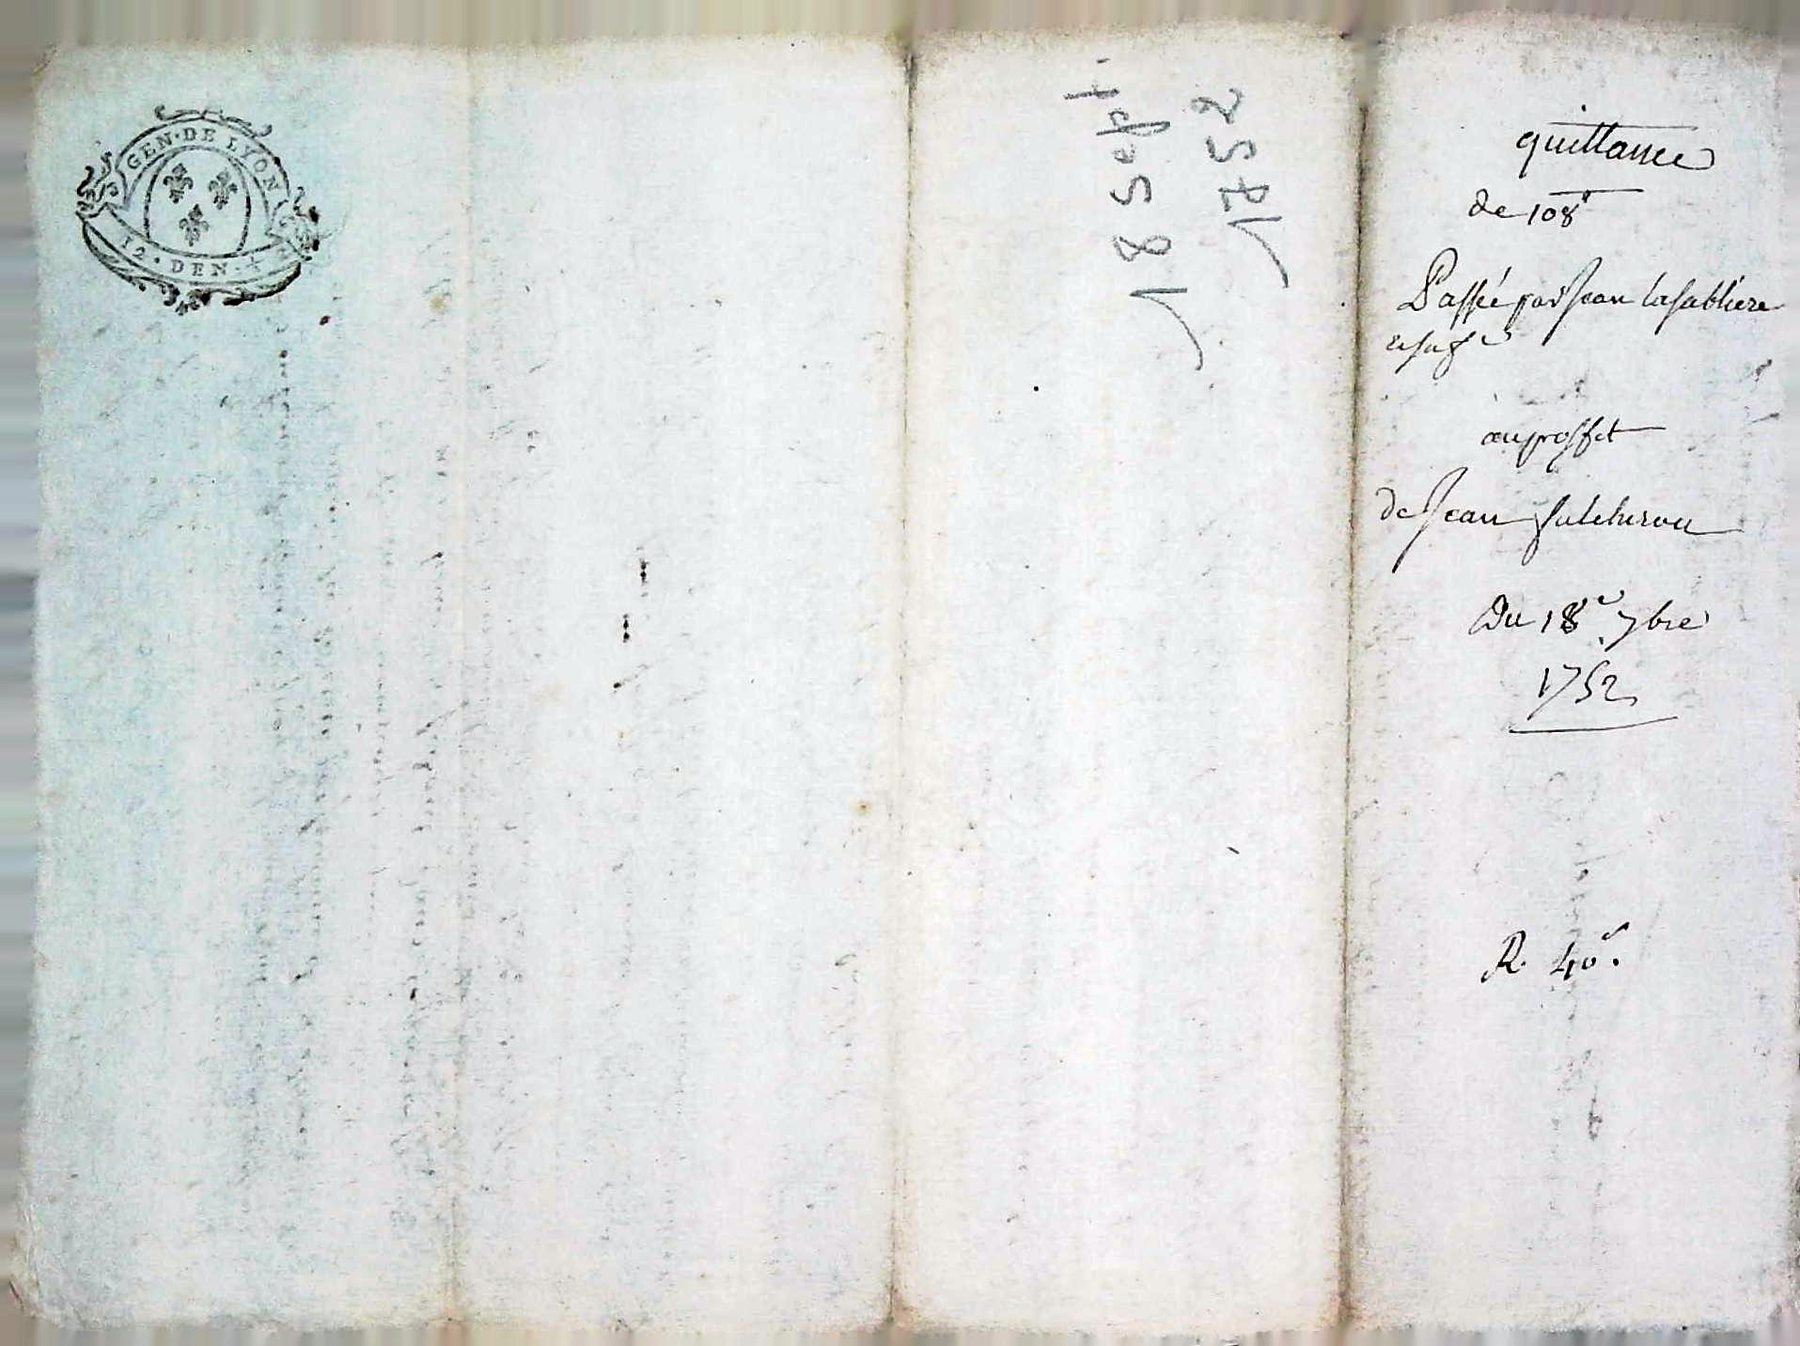 GEN·DE LYON
12·DEN·
18 Sept.
1752
quittance
de 108#
Passé par Jean lasabliere
au proffit
de Jean
Du 18e 7bre
1752
R. 40s.